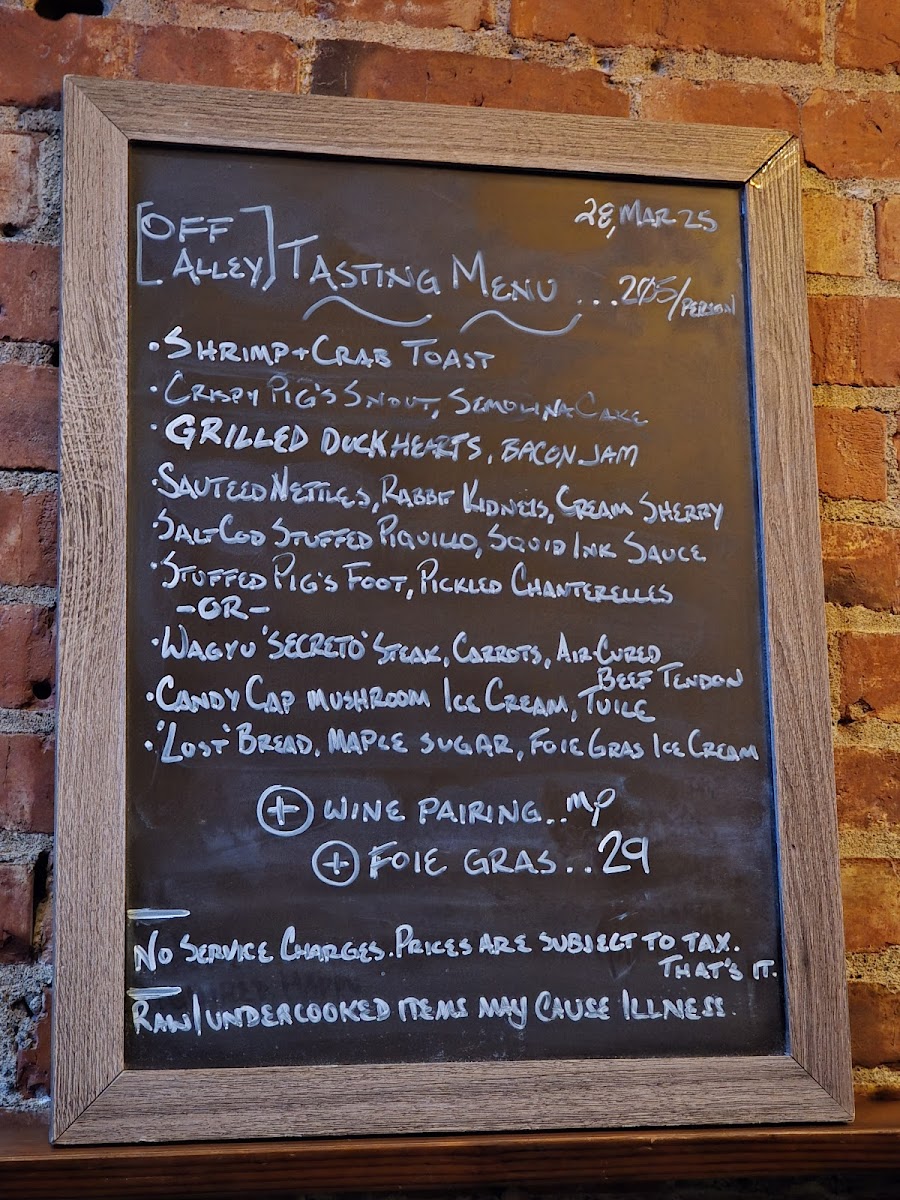 [OFF
ALLEY] TASTING MENU ...205/PERSON
28, MAR 25
• SHRIMP + CRAB TOAST
• CRISPY PIG'S SNOUT, SEMOLINA CAKE
• GRILLED DUCK HEARTS, BACON JAM
• SAUTEED NETTLES, RABBIT KIDNEYS, CREAM SHERRY
• SALT COD STUFFED PIQUILLO, SQUID INK SAUCE
• STUFFED PIG'S FOOT, PICKLED CHANTERELLES
-OR-
• WAGYU 'SECRETO' STEAK, CARROTS, AIR-CURED
BEEF TENDON
• CANDY CAP MUSHROOM ICE CREAM, TUILE
• 'LOST' BREAD, MAPLE SUGAR, FOIE GRAS ICE CREAM
⊕ WINE PAIRING..MP
⊕ FOIE GRAS..29
NO SERVICE CHARGES. PRICES ARE SUBJECT TO TAX.
THAT'S IT.
RAW/UNDERCOOKED ITEMS MAY CAUSE ILLNESS.